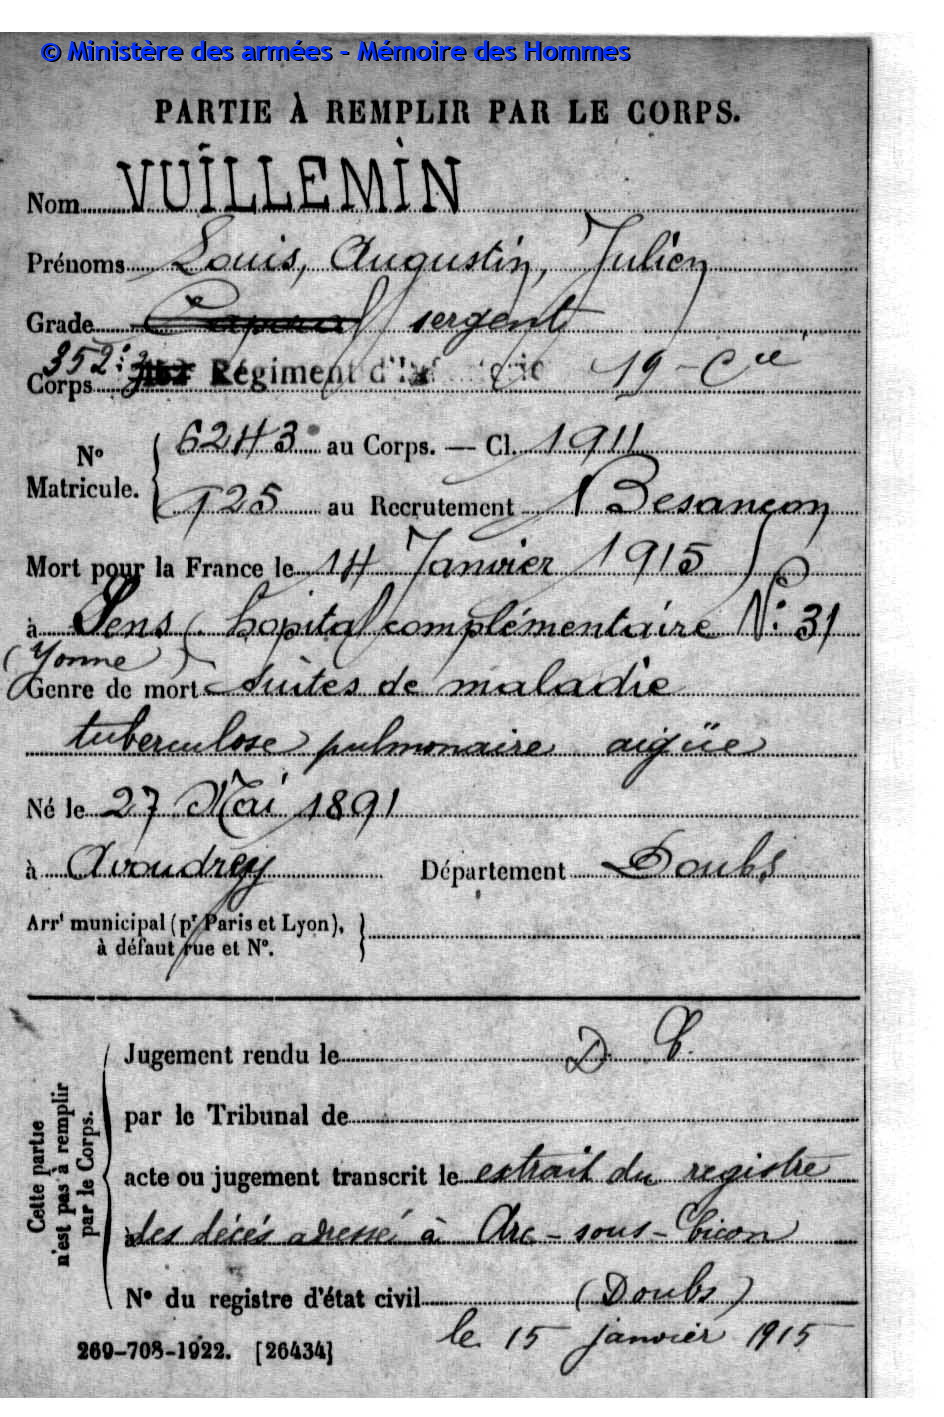 © Ministère des armées - Mémoire des Hommes
PARTIE À REMPLIR PAR LE CORPS.
Nom VUILLEMIN
Prénoms Louis, Augustin, Julien
Grade Caporal sergent
352e
Corps Régiment d'Infanterie 19 - Cie
No Matricule. 6243 au Corps. — Cl. 1911
725 au Recrutement Besançon
Mort pour la France le 14 Janvier 1915
à Sens (hopital complémentaire No: 31
(Yonne)
Genre de mort suites de maladie
tuberculose pulmonaire aigüe
Né le 27 Mai 1891
à Avoudrey Département Doubs
Arrt municipal (pr Paris et Lyon),
à défaut rue et No.
Cette partie
n'est pas à remplir
par le Corps.
Jugement rendu le D. C.
par le Tribunal de
acte ou jugement transcrit le extrait du registre
à des décés adressé à Arc-sous-Cicon
No du registre d'état civil (Doubs)
le 15 janvier 1915
269-708-1922. [26434]